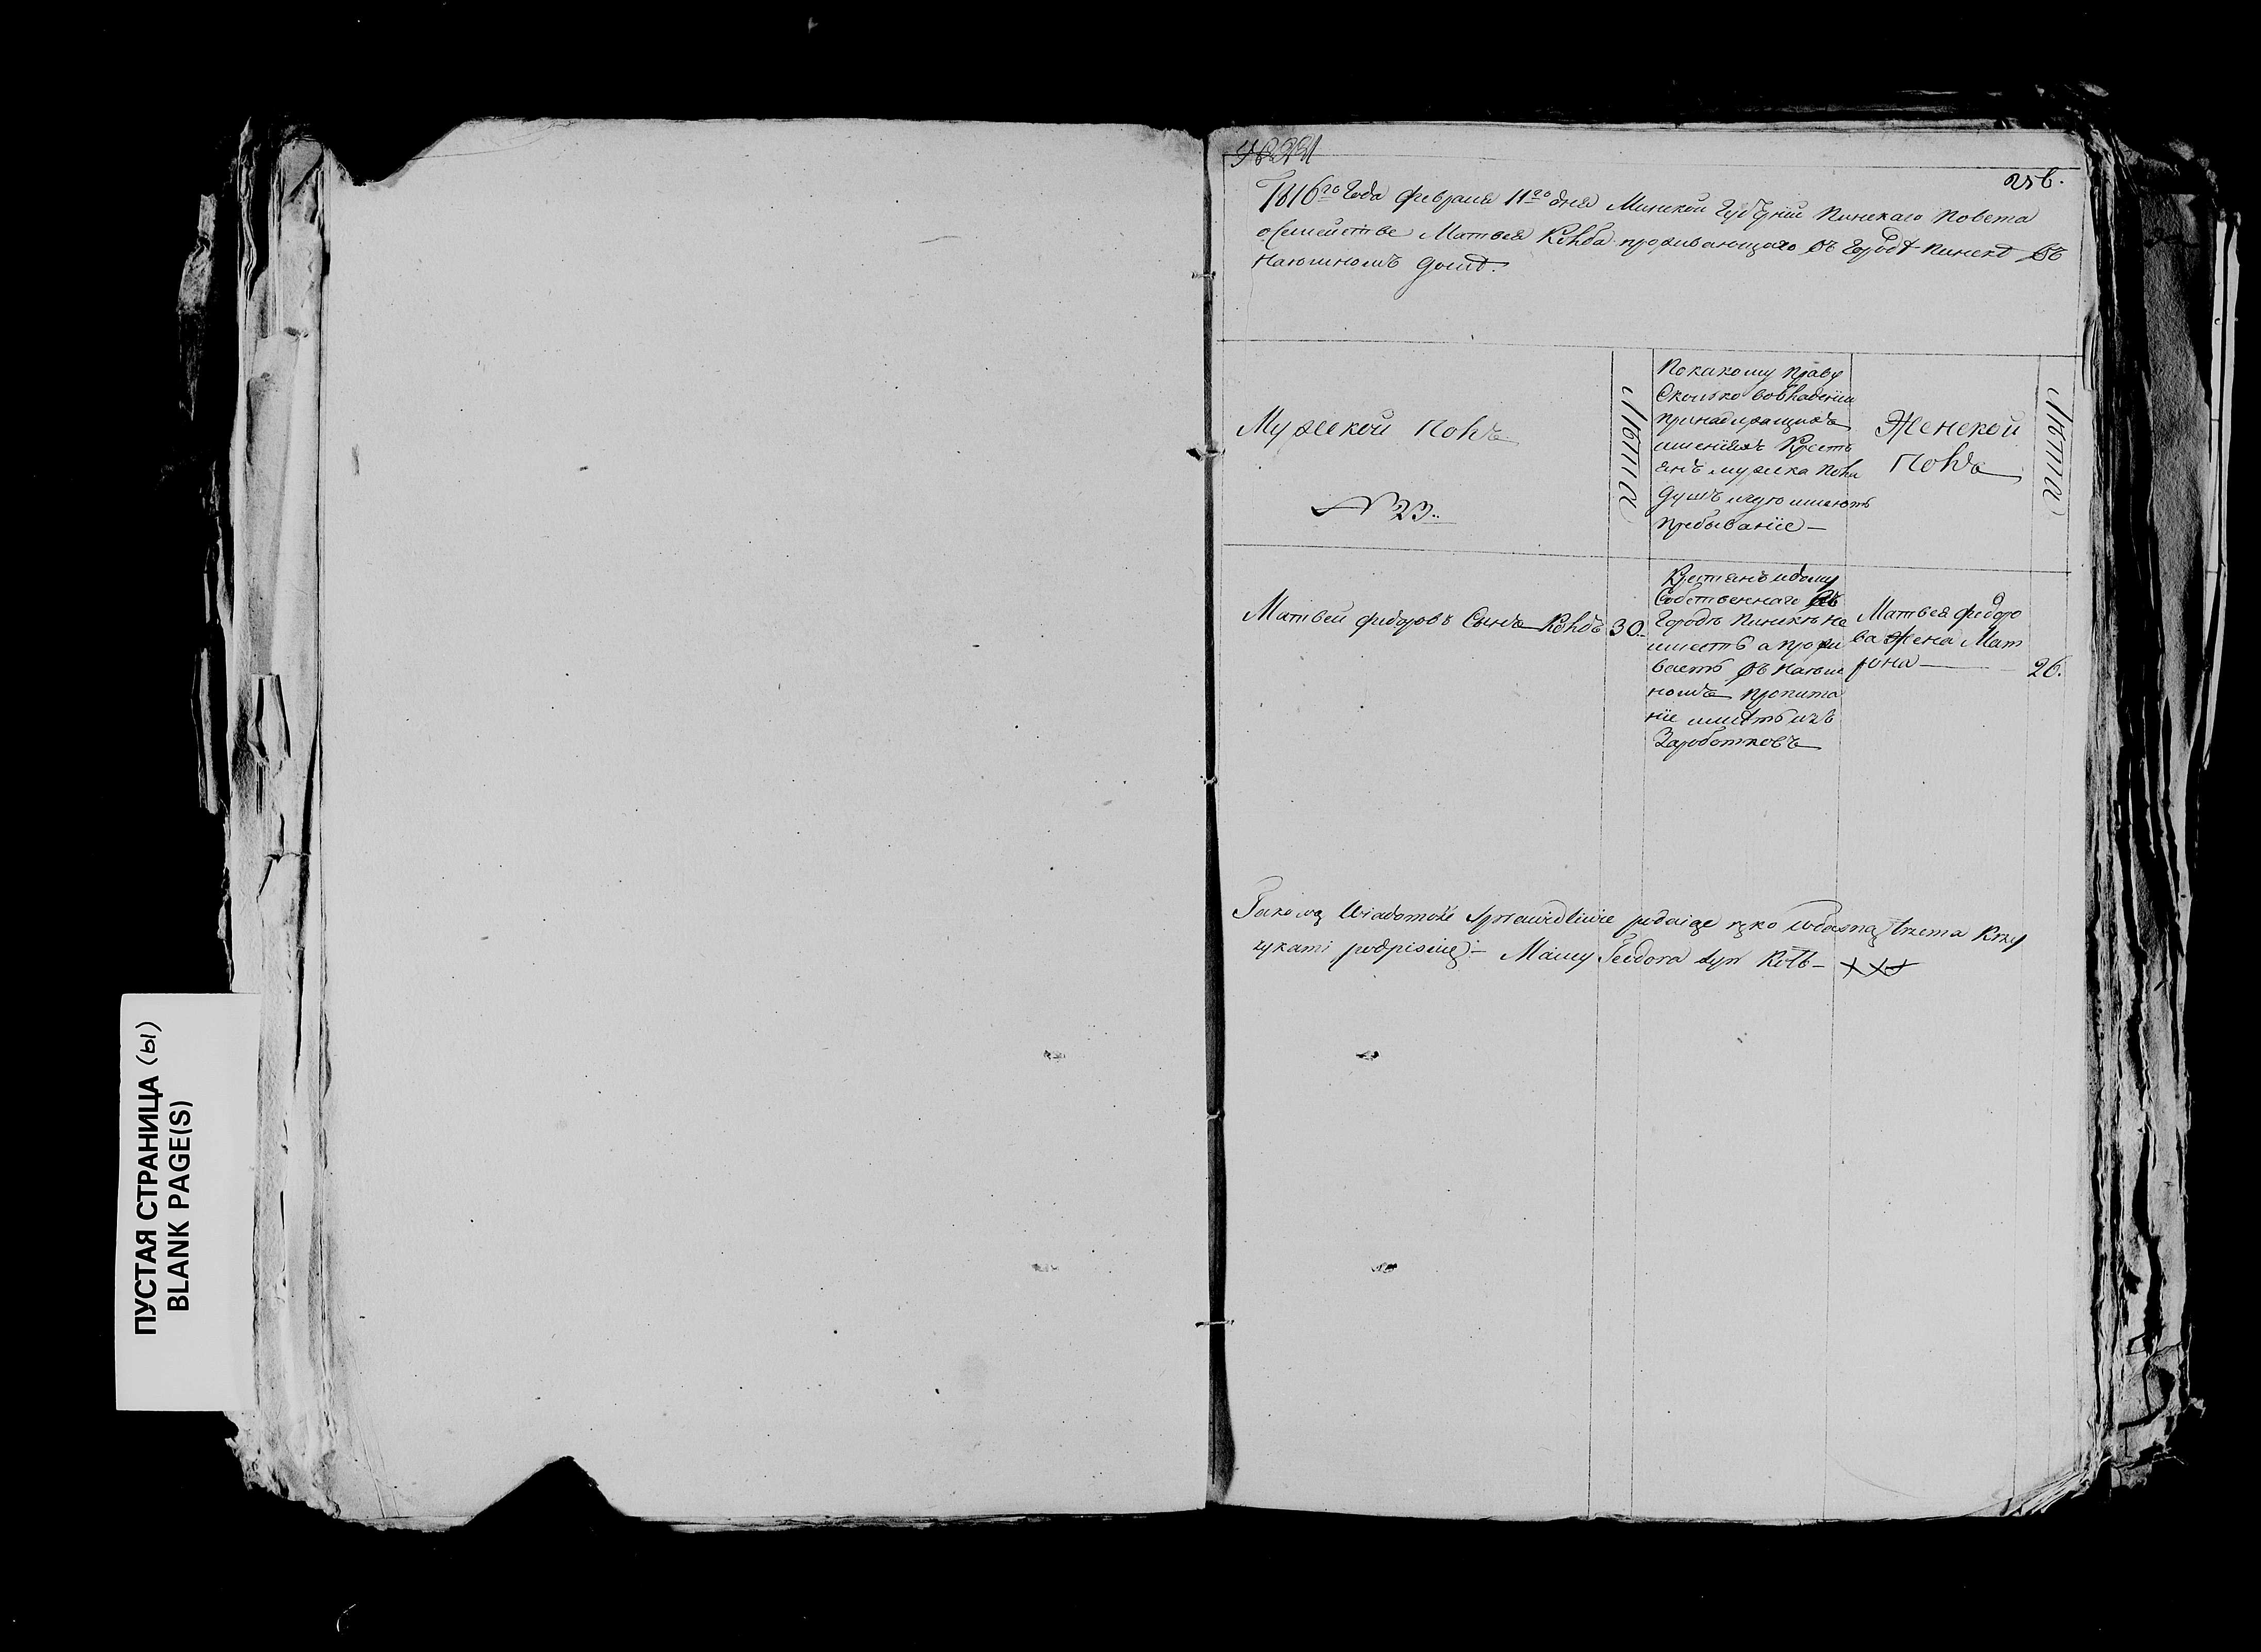 ПУСТАЯ СТРАНИЦА (ы)
BLANK PAGE(S)
256.
1816го Года февраля 11го дня Минской Губернии Пинскаго Повета
о Семействе Матвея Колба проживающаго въ Городѣ Пинскѣ въ
наюмномъ домѣ.
Мужской Полъ
№ 23.
Лѣта
По какому праву
Сколько во владении
принадлежащихъ
именияхъ Кресть
янъ мужска пола
душъ и где имеютъ
пребывание —
Женской
Полъ
Лѣта
Матвей федоровъ Сынъ Колбъ
30.
Крестянъ и дому
Собственнаго въ
Городѣ Пинскѣ не
имеетъ а прожи
ваетъ въ наюм
номъ пропита
ние имѣетъ изъ
Заработковъ
Матвея федоро
ва Жена Мат
рона
26.
Takową Wiadomość sprawiedliwie podaige ręko własną trzema Krzy
zykami podpisuię — Maciey Teodora syn Kołb — XXX